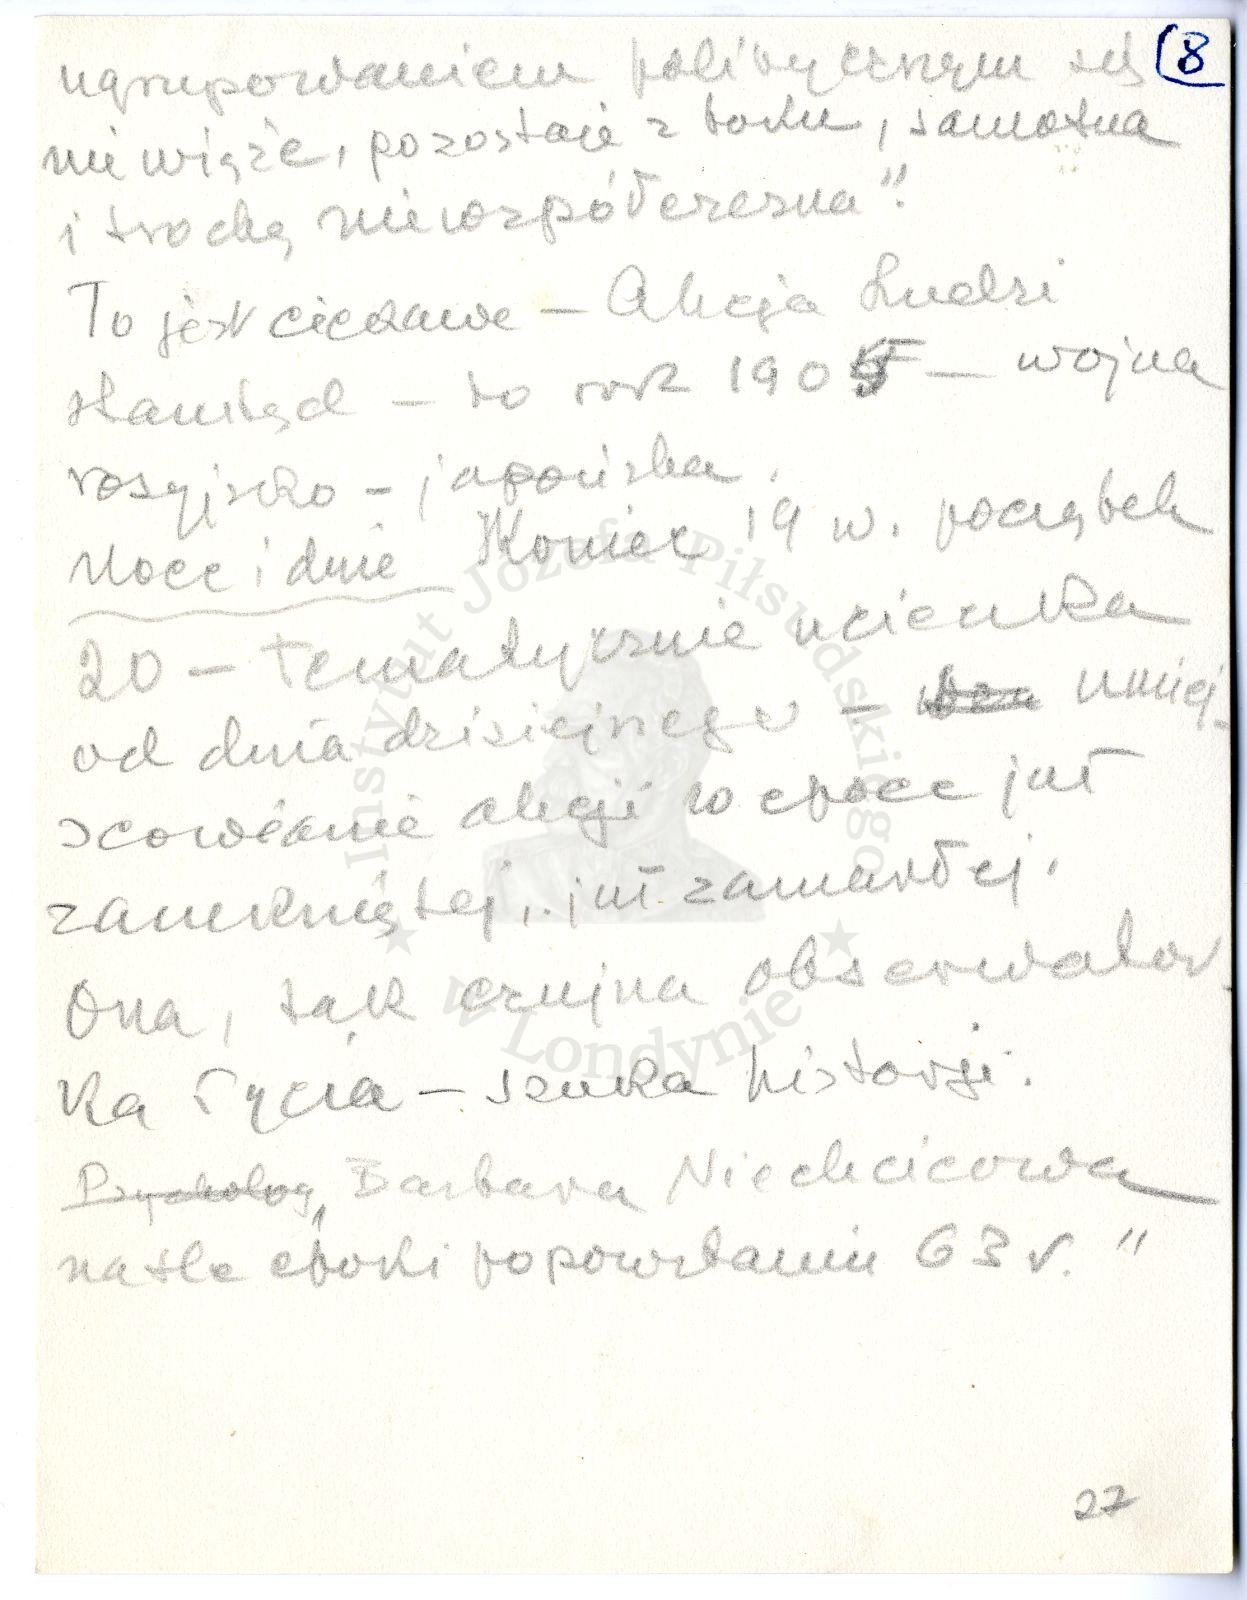 8
ugrupowaniem politycznym się
nie wiąże, pozostaje z boku, samotna
i trochę niewspółczesna".
To jest ciekawe – Akcja Ludzi
stamtąd – to rok 1905 – wojna
rosyjsko-japońska.
Noce i dnie Koniec 19 w. początek
20 – tematycznie ucieczka
od dnia dzisiejszego – umiej-
scowienie akcji w epoce już
zamkniętej, już zamarłej.
Ona, tak czujna obserwator
ka życia – szuka historji.
Psycholog „Barbara Niechcicowa
na tle epoki popowstaniu 63 r."
27
Instytut Józefa Piłsudskiego
w Londynie